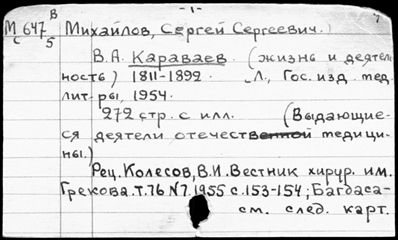 - 1 -
В
М 647 Михайлов, Сергей Сергеевич.
С 5
В.А. Караваев. (жизнь и деятель-
ность) 1811-1892. Л., Гос. изд. мед.
лит-ры, 1954.
272 стр. с илл. (Выдающие-
ся деятели отечественной медици-
ны.)
Рец. Колесов, В.И. Вестник хирур. им.
Грекова. Т.76 N7. 1955 с.153-154; Багдаса-
см. след. карт.